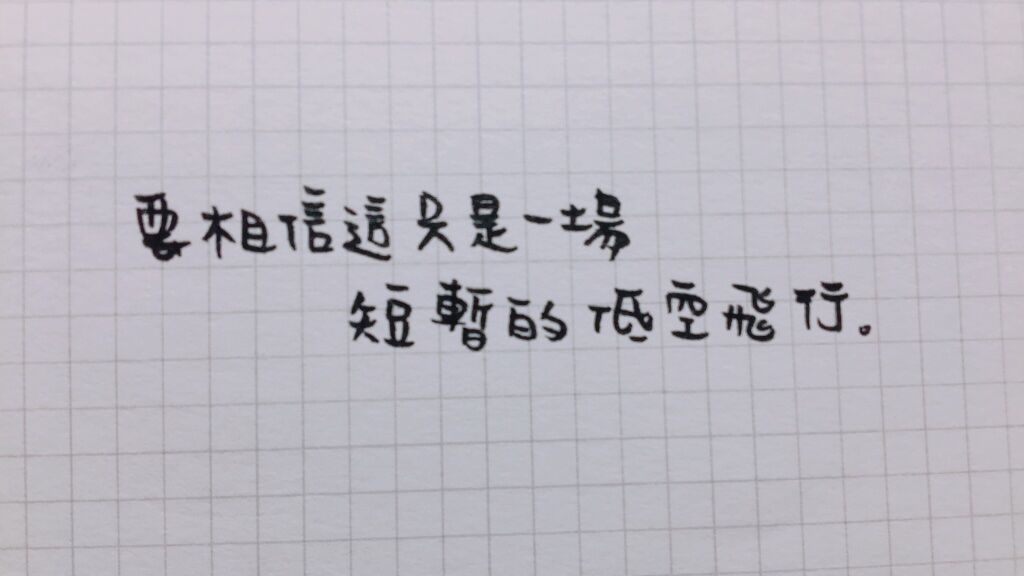 要相信這只是一場
短暫的低空飛行。